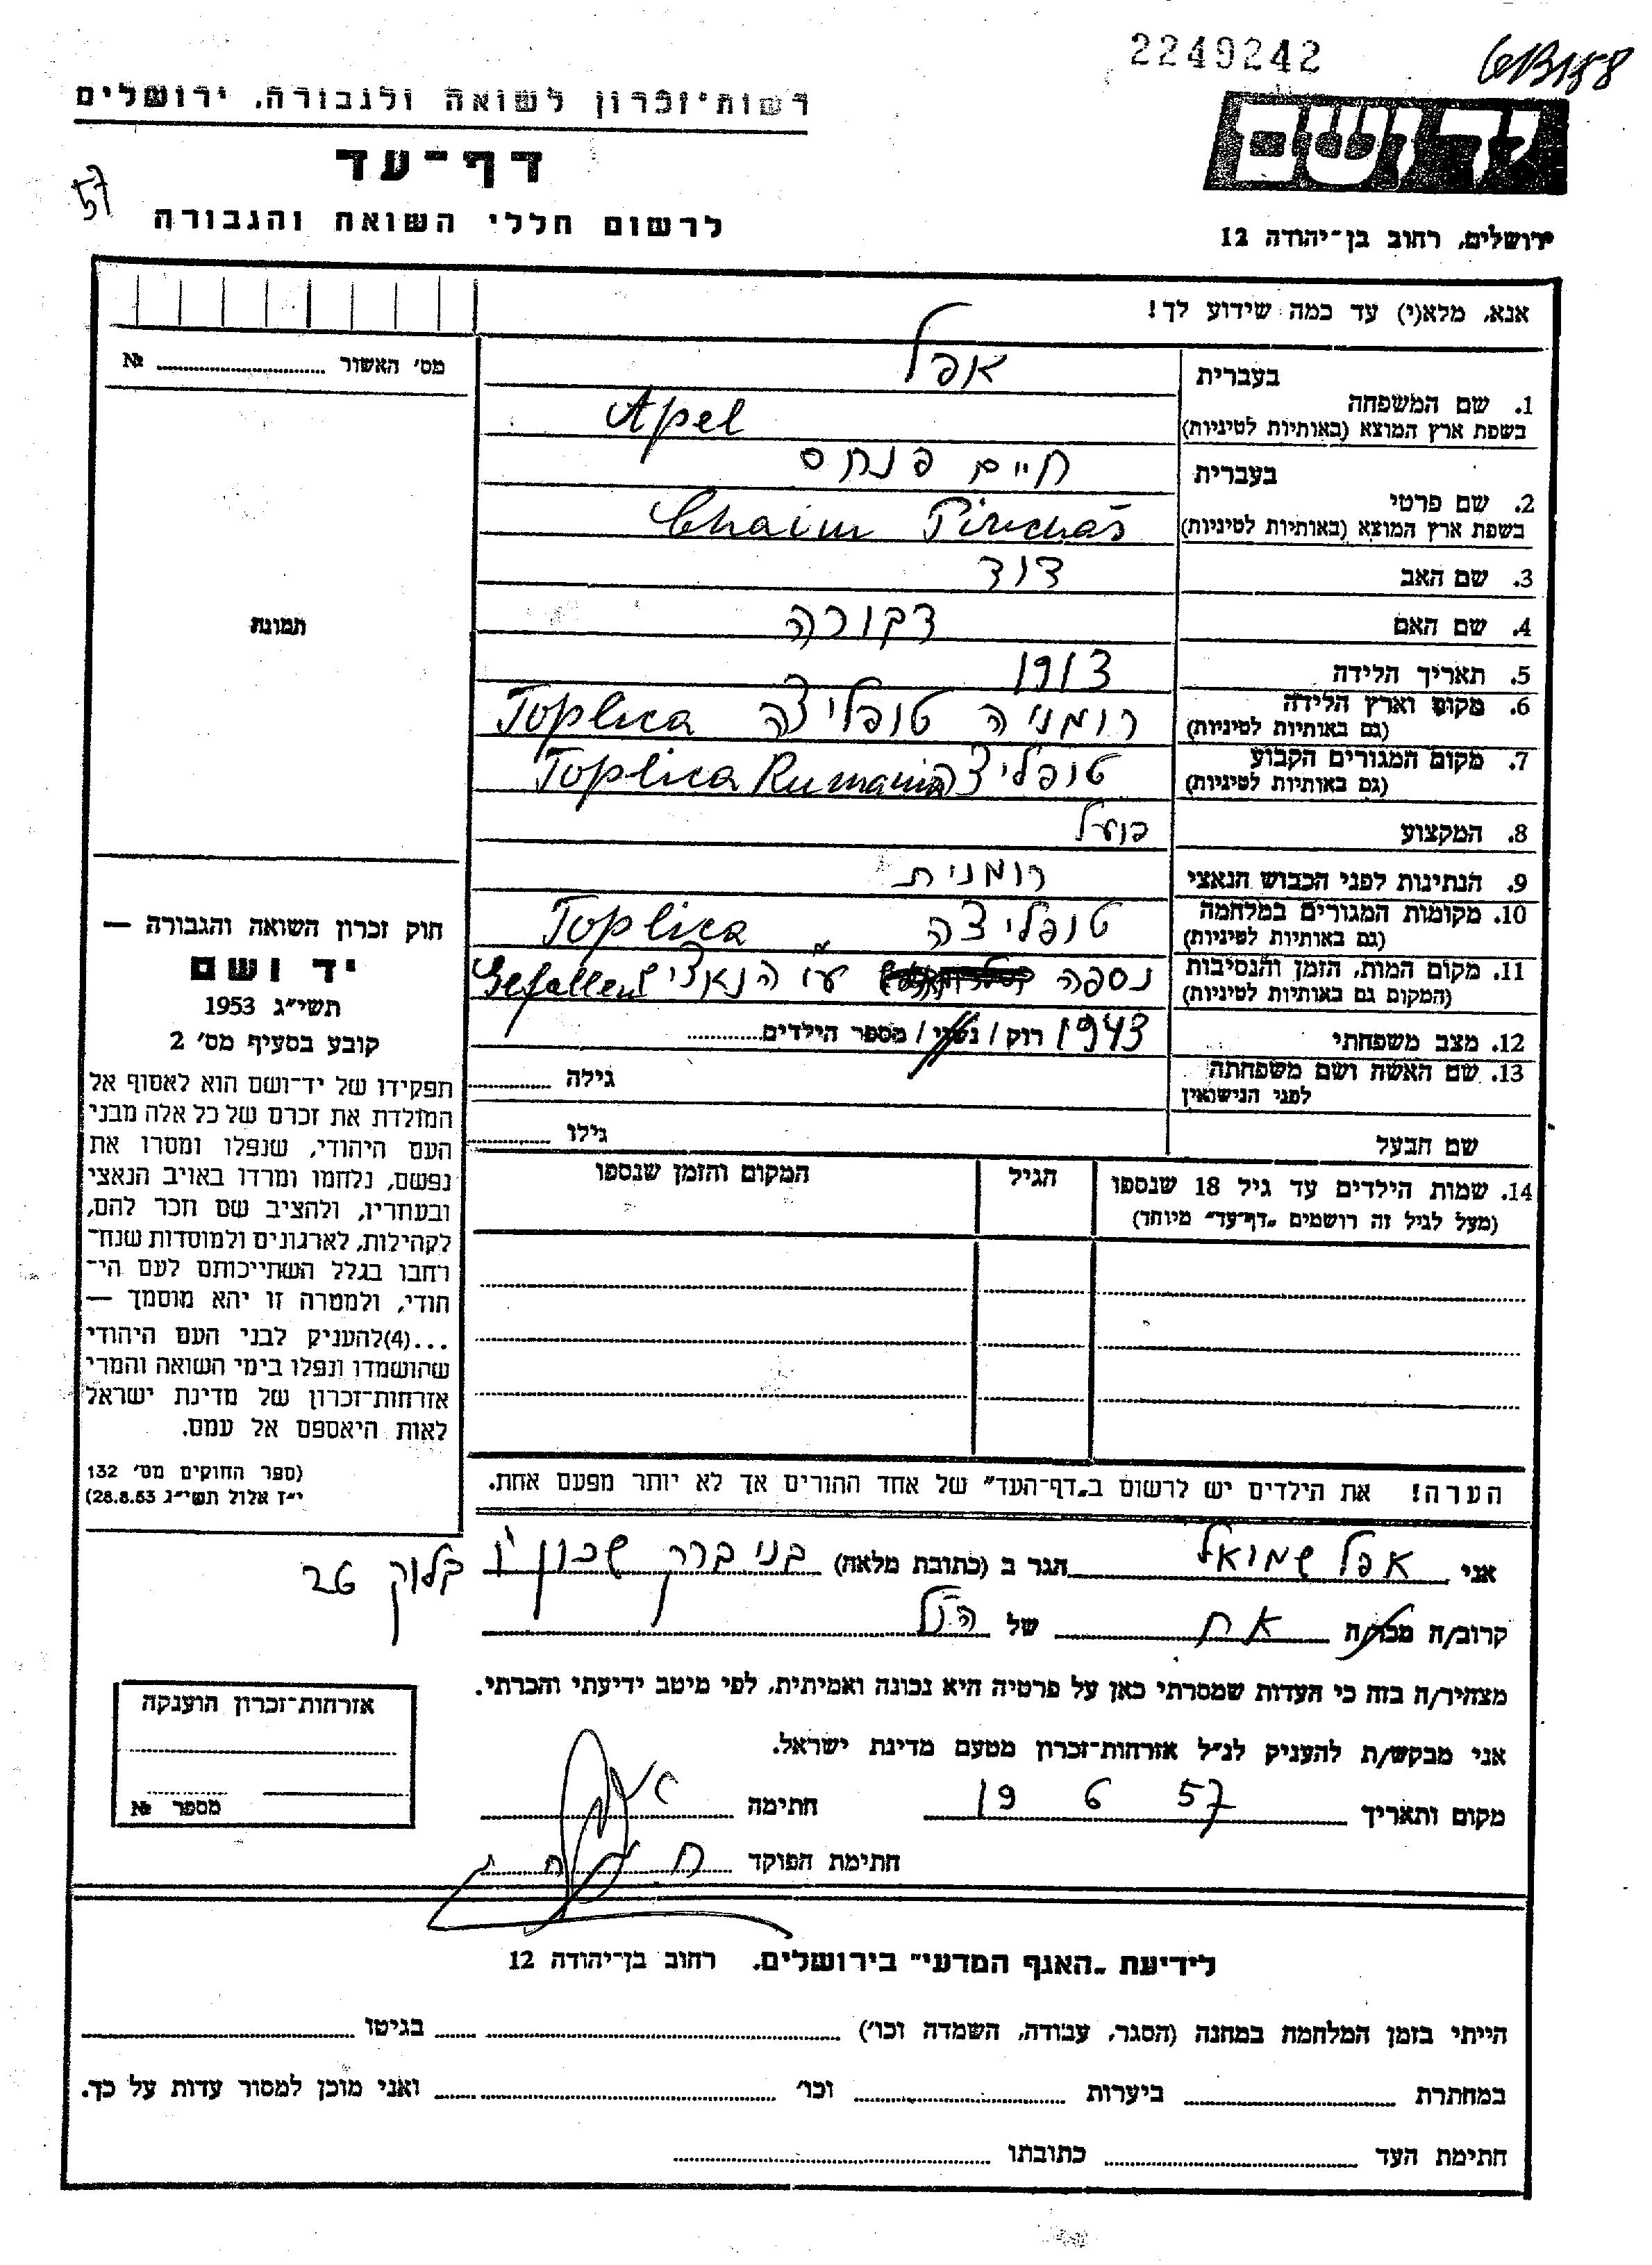 2249242
6B158
רשות־זכרון לשואה ולגבורה, ירושלים
יד ושם
דף־עד
57
לרשום חללי השואה והגבורה
ירושלים, רחוב בן־יהודה 12
אנא, מלא(י) עד כמה שידוע לך!
מס׳ האשור № 
בעברית אפל
1. שם המשפחה
בשפת ארץ המוצא (באותיות לטיניות) Apel
בעברית חיים פנחס
2. שם פרטי
בשפת ארץ המוצא (באותיות לטיניות) Chaim Pinchas
3. שם האב דוד
4. שם האם דבורה
תמונה
5. תאריך הלידה 1913
6. מקום וארץ הלידה רומניה טופליצה Toplica
(גם באותיות לטיניות)
7. מקום המגורים הקבוע טופליצה Toplica Rumania
(גם באותיות לטיניות)
8. המקצוע פועל
9. הנתינות לפני הכבוש הנאצי רומנית
10. מקומות המגורים במלחמה טופליצה Toplica
(גם באותיות לטיניות)
11. מקום המות, הזמן והנסיבות נספה ע״י הנאצים Gefallen
(המקום גם באותיות לטיניות)
12. מצב משפחתי 1943 רוק / נשוי / מספר הילדים
13. שם האשה ושם משפחתה גילה
לפני הנישואין
שם הבעל גילו
14. שמות הילדים עד גיל 18 שנספו הגיל המקום והזמן שנספו
(מעל לגיל זה רושמים „דף־עד״ מיוחד)
חוק זכרון השואה והגבורה —
יד ושם
תשי״ג 1953
קובע בסעיף מס׳ 2
תפקידו של יד־ושם הוא לאסוף אל
המולדת את זכרם של כל אלה מבני
העם היהודי, שנפלו ומסרו את
נפשם, נלחמו ומרדו באויב הנאצי
ובעחריו, ולהציב שם וזכר להם,
לקהילות, לארגונים ולמוסדות שנח־
רחבו בגלל השתייכותם לעם הי־
הודי, ולמטרה זו יהא מוסמך —
...(4)להעניק לבני העם היהודי
שהושמדו ונפלו בימי השואה והמרי
אזרחות־זכרון של מדינת ישראל
לאות היאספם אל עמם.
(ספר החוקים מס׳ 132
י״ז אלול תשי״ג 28.8.53)
הערה! את הילדים יש לרשום ב„דף־העד״ של אחד ההורים אך לא יותר מפעם אחת.
אני אפל שמואל הגר ב (כתובת מלאה) בני ברק שכון ו׳ בלוק 26
קרוב/ה מכר/ה אח של הנ״ל
מצהיר/ה בזה כי העדות שמסרתי כאן על פרטיה היא נכונה ואמיתית, לפי מיטב ידיעתי והכרתי.
אני מבקש/ת להעניק לנ״ל אזרחות־זכרון מטעם מדינת ישראל.
מקום ותאריך 19 6 57 חתימה
חתימת הפוקד
אזרחות־זכרון הוענקה
מספר №
לידיעת „האגף המדעי״ בירושלים. רחוב בן־יהודה 12
הייתי בזמן המלחמה במחנה (הסגר, עבודה, השמדה וכו׳) בגיטו
במחתרת ביערות וכו׳ ואני מוכן למסור עדות על כך.
חתימת העד כתובתו